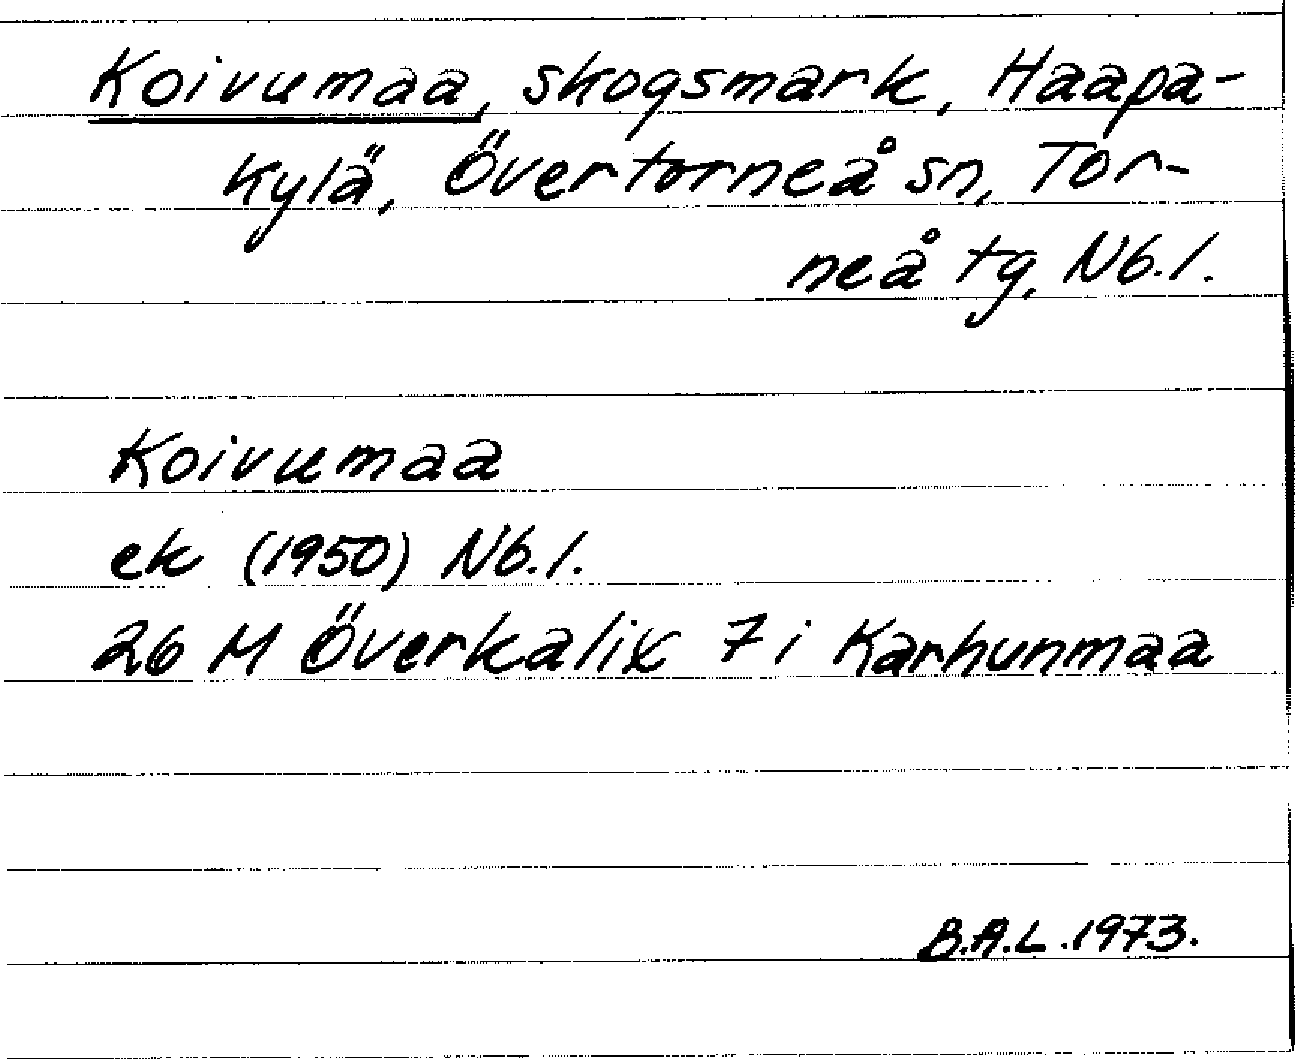 Koivumaa, skogsmark, Haapa-
kylä, Övertorneå sn, Tor-
neå tg, Nb.l.
Koivumaa
ek (1950) Nb.l.
26 M Överkalix 7 i Karhunmaa
B.A.L. 1973.